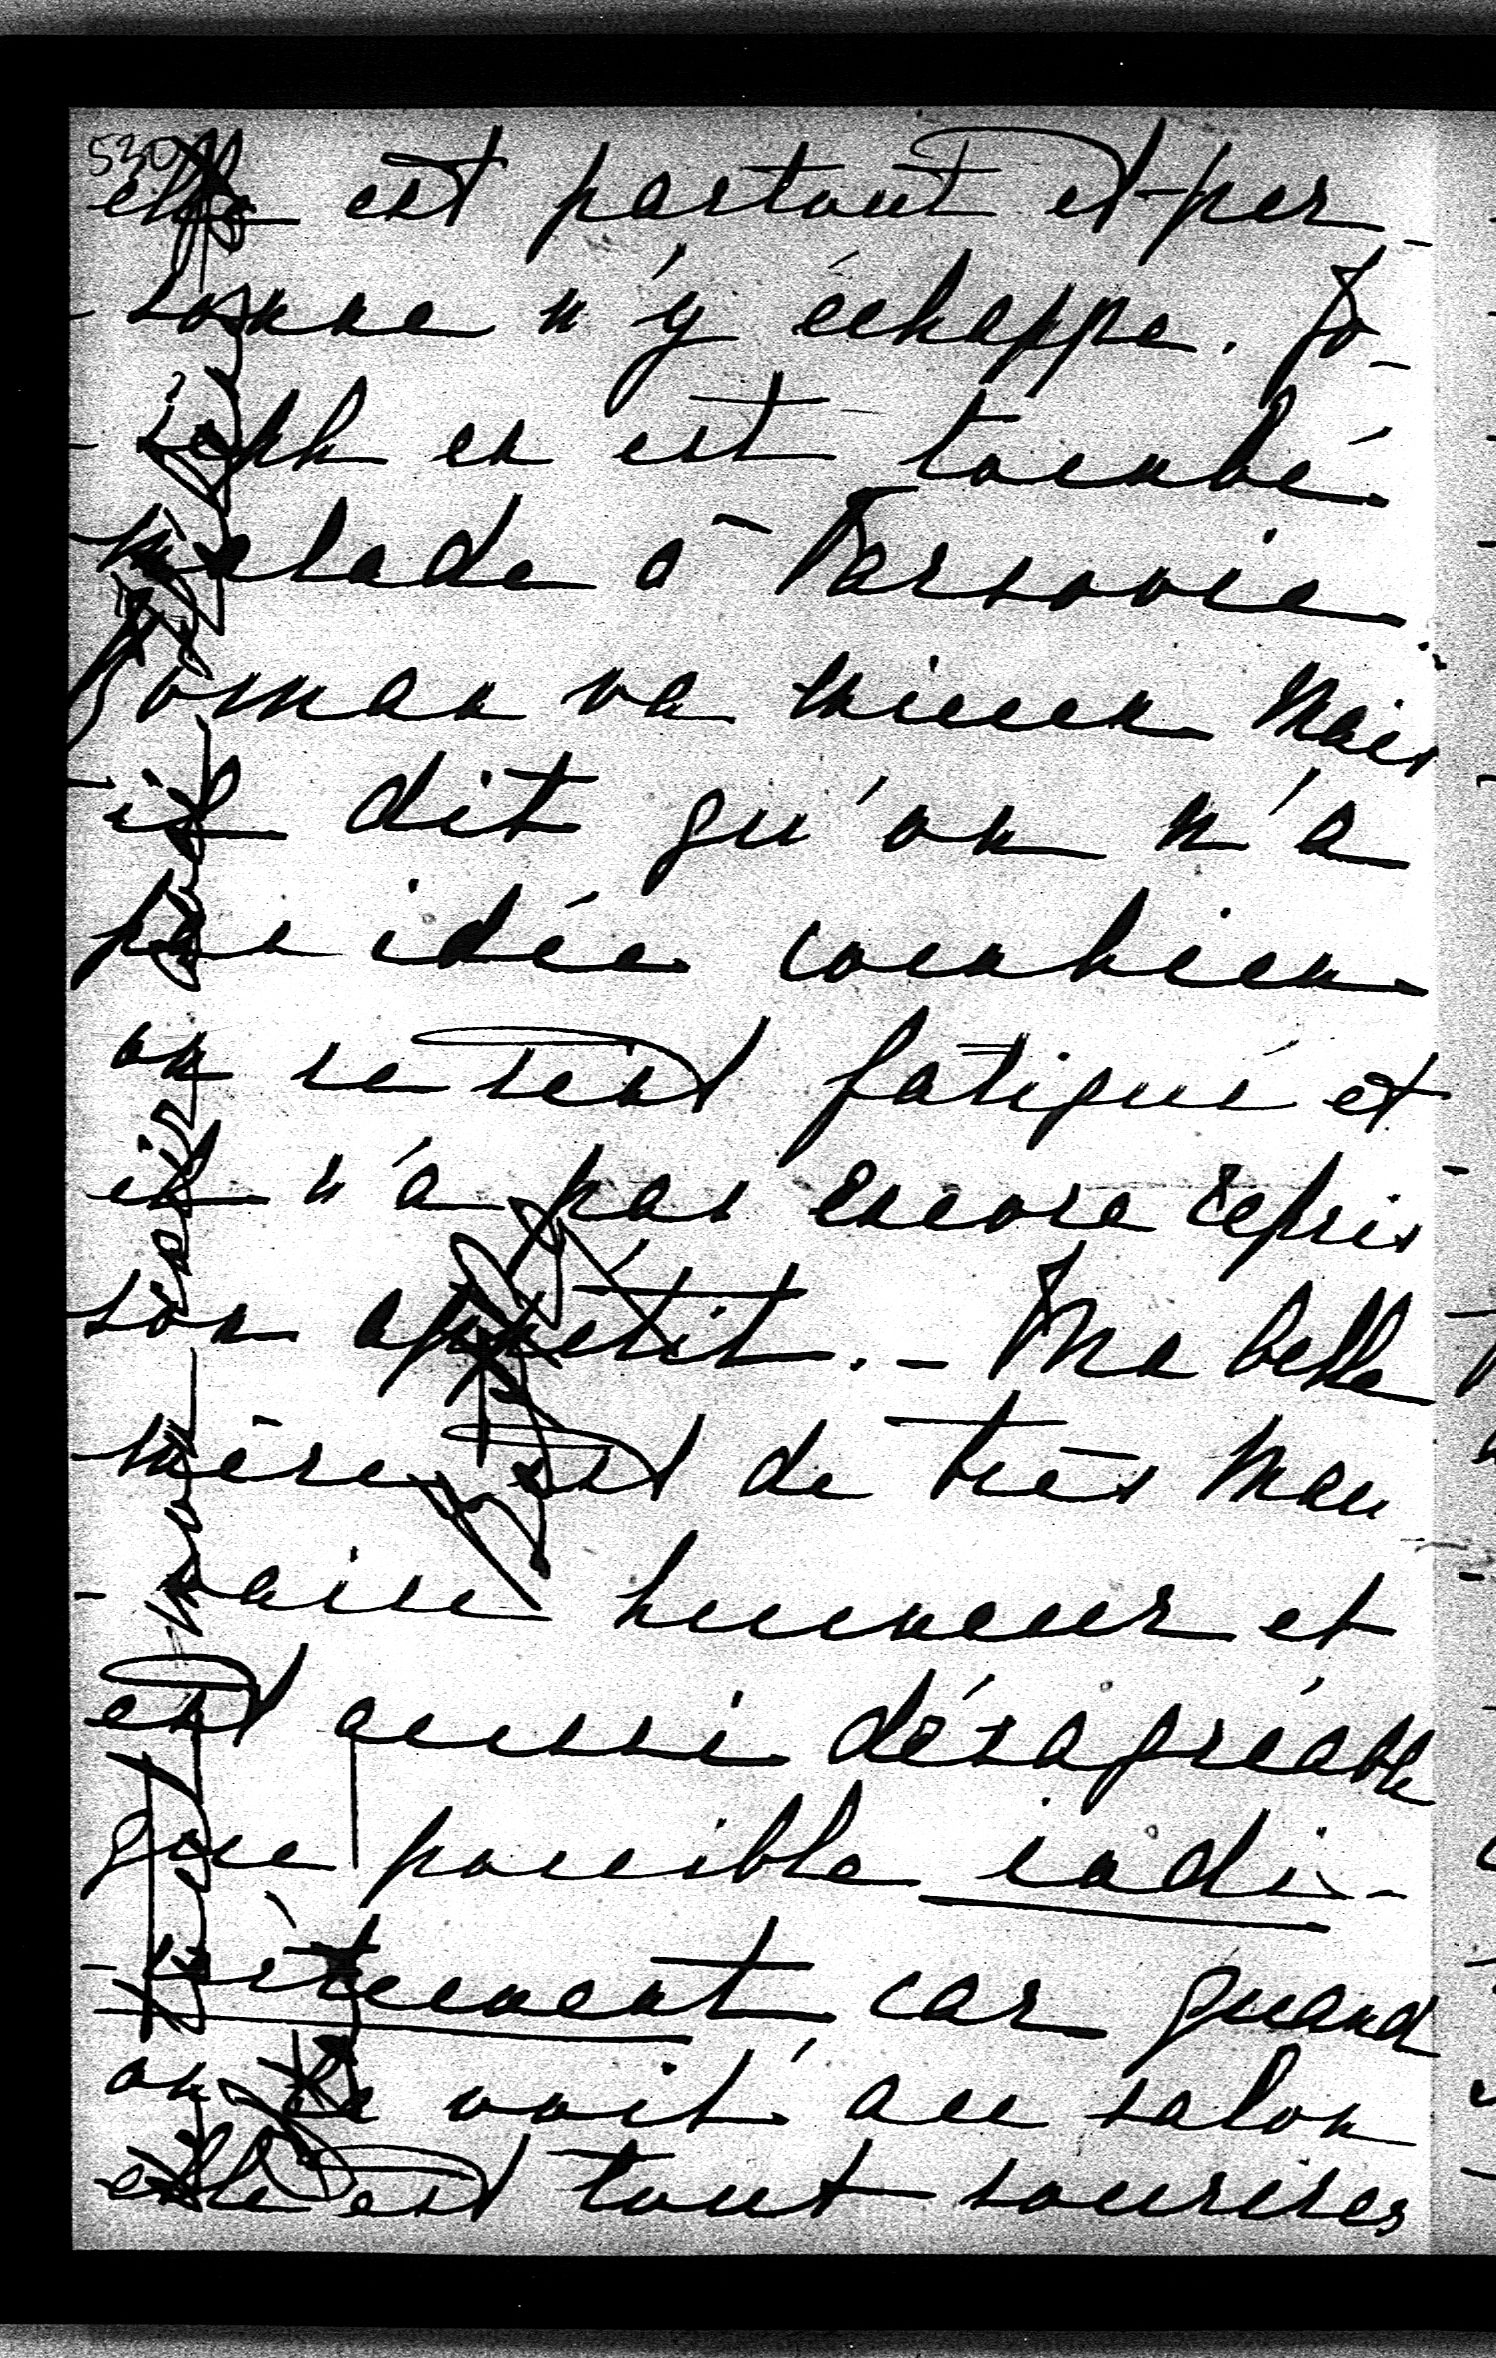 530
elle est partout et per-
-sonne n'y échappe. Jo-
-seph en est tombé
malade à Varsovie.
Roman va mieux mais
il dit qu'on n'a
pas idée combien
on se sent fatigué et
il n'a pas encore repris
son appétit. - Ma belle
mère est de très mau
-vaise humeur et
est aussi désagréable
que possible indi-
-rectement car quand
on la voit au salon
elle est tout sourires